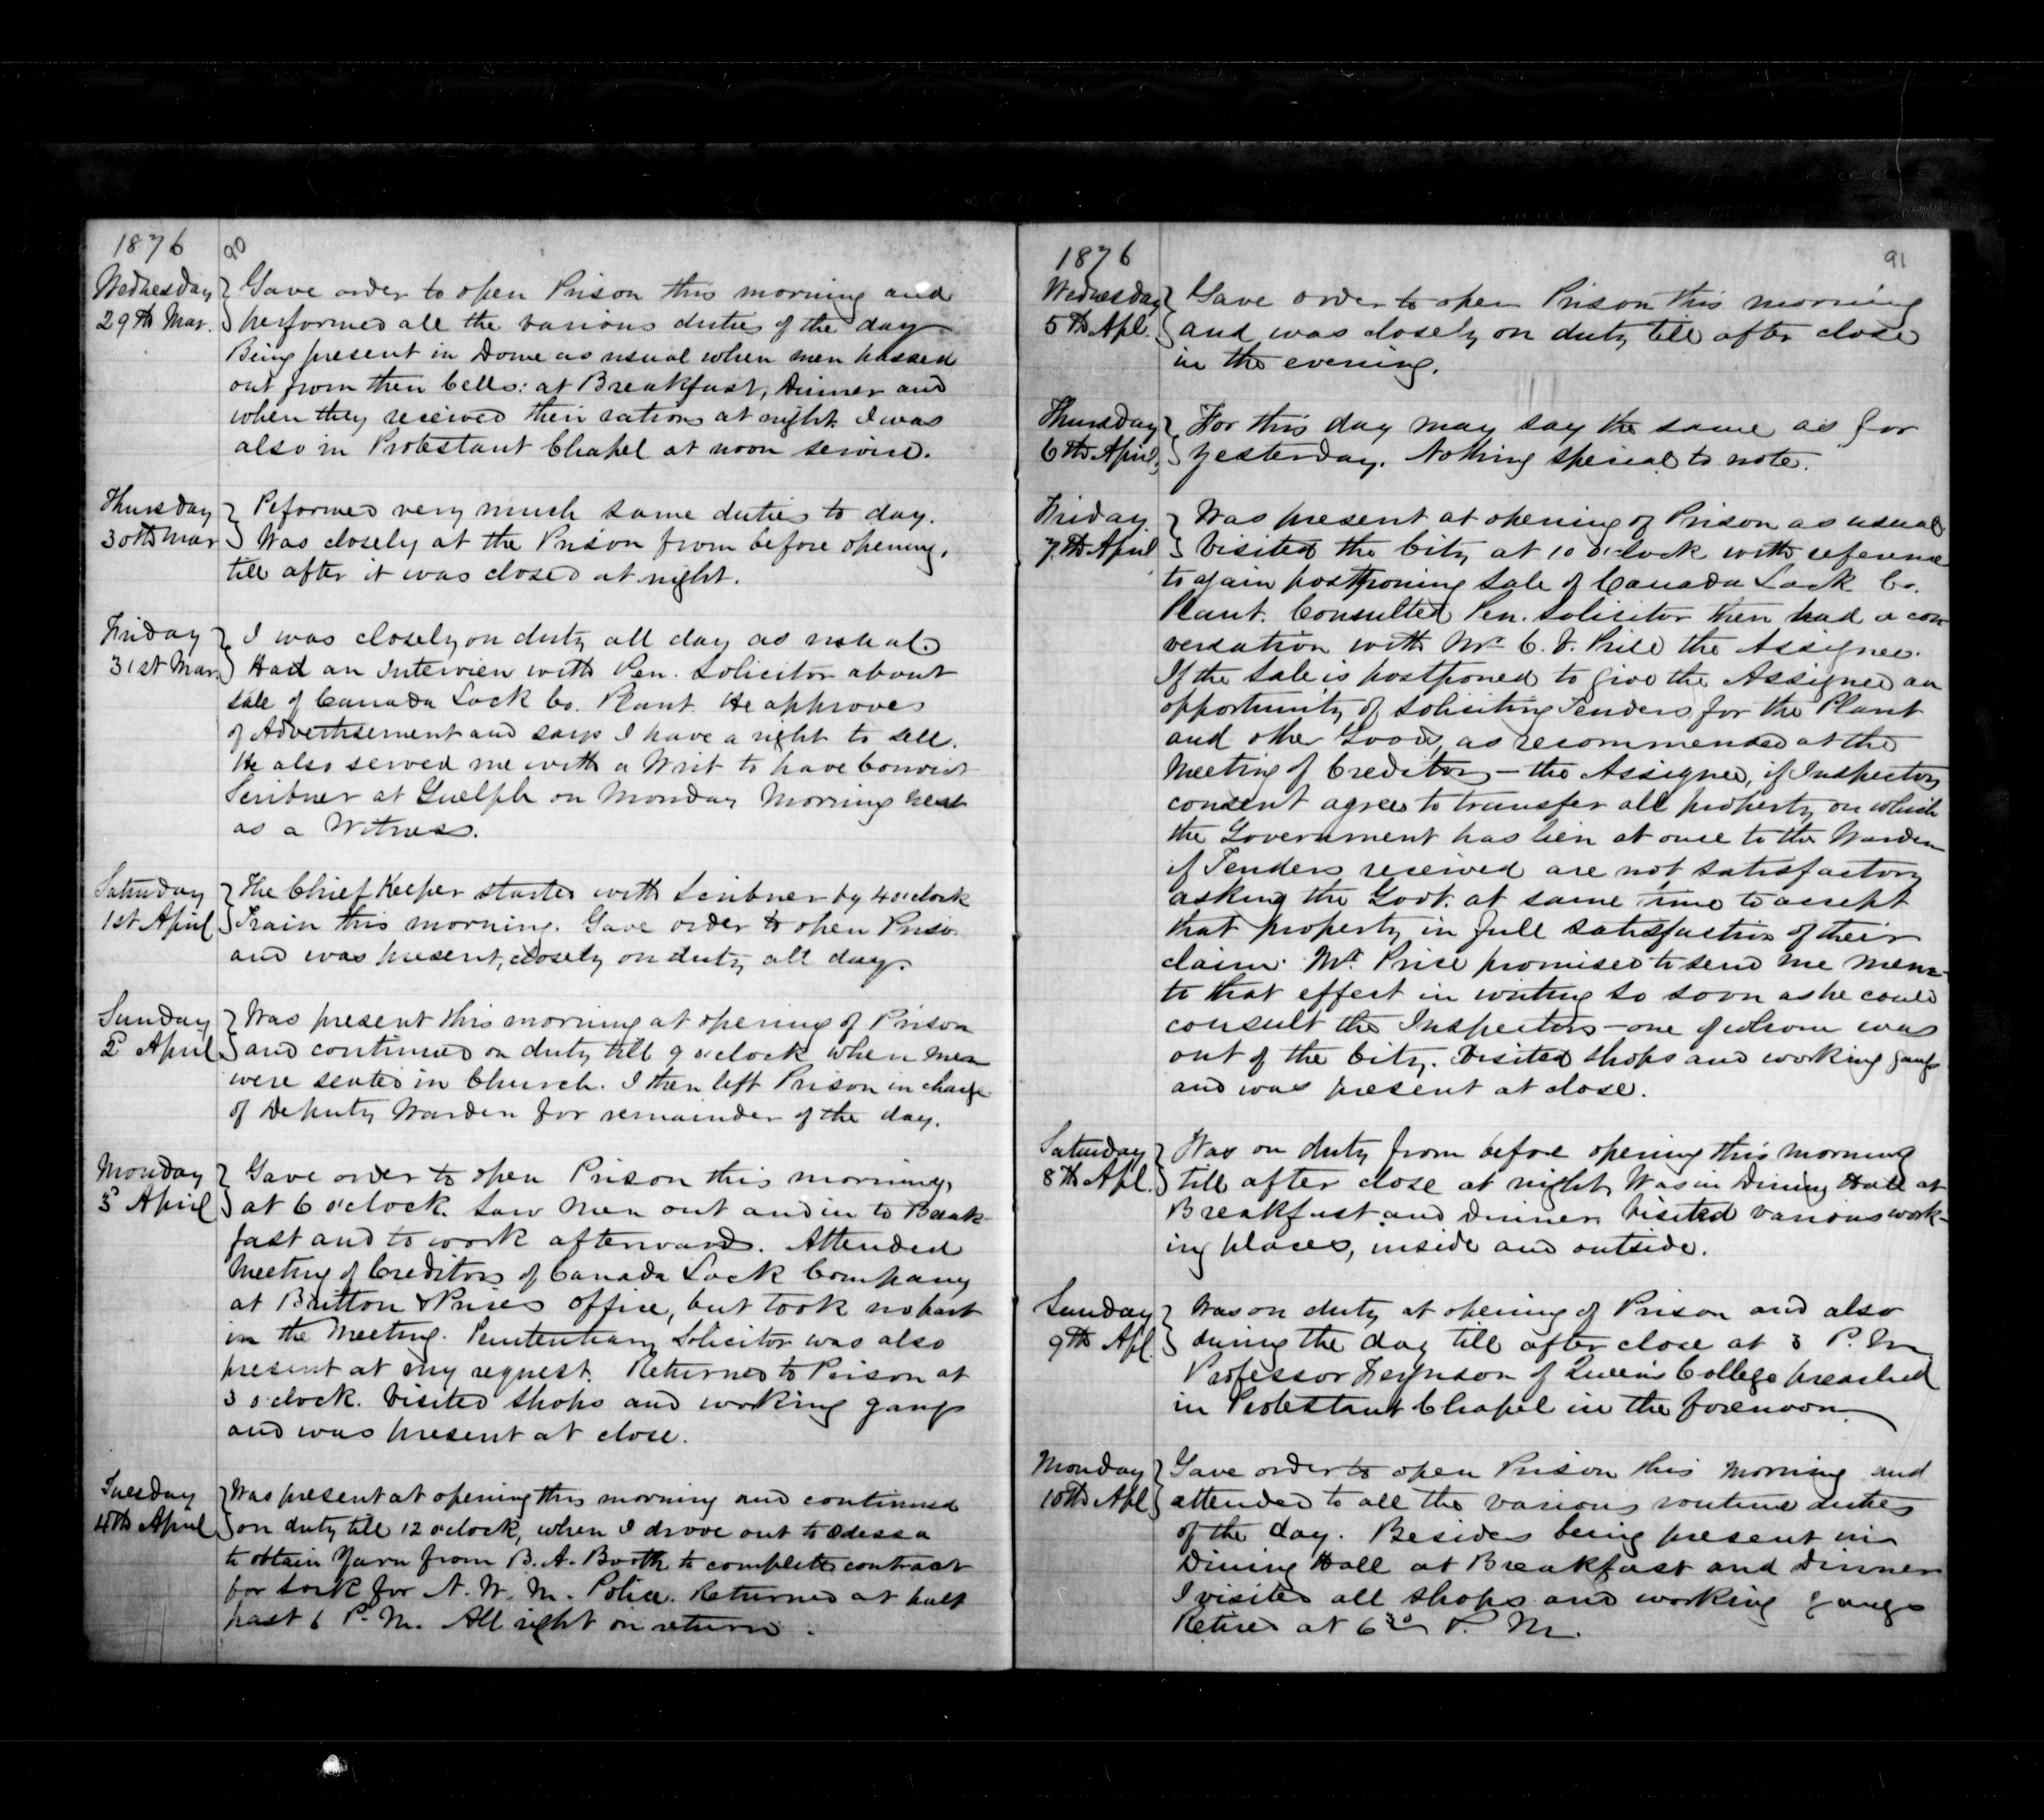 1876 90
Wednesday
29th Mar.
Gave order to open Prison this morning and
performed all the various duties of the day
Being present in Dome as usual when men passed
out from their Cells: at Breakfast, Dinner and
when they received their rations at night. I was
also in Protestant Chapel at noon service.
Thursday
30th Mar
Peformed very much same duties to day.
Was closely at the Prison from before opening,
till after it was closed at night.
Friday
31st Mar.
I was closely on duty all day as usual.
Had an Interview with Pen. Solicitor about
sale of Canada Lock Co. Plant. He approves
of Advertisement and says I have a right to sell.
He also served me with a Writ to have Convict
Scribner at Guelph on Monday Morning next
as a Witness.
Saturday
1st April
The Chief Keeper started with Scribner by 4 o'clock
Train this morning. Gave order to open Prison
and was present, closely on duty all day.
Sunday
2d April
Was present this morning at opening of Prison
and continued on duty till 9 o'clock when men
were seated in Church. I then left Prison in charge
of Deputy Warden for remainder of the day.
Monday
3d April
Gave order to open Prison this morning,
at 6 o'clock. Saw men out and in to Break-
fast and to work afterwards. Attended
Meeting of Creditors of Canada Lock Company
at Britton & Prices office, but took no part
in the Meeting. Penitentiary Solicitor was also
present at my request. Returned to Prison at
3 o'clock. Visited shops and working gangs
and was present at close.
Tuesday
4th April
Was present at opening this morning and continued
on duty till 12 o'clock, when I drove out to Odessa
to obtain Yarn from B. A. Booth to complete contract
for Sock for N. W. M. Police. Returned at half
past 6 P. M. All right on return.
1876 91
Wednesday
5th Apl.
Gave order to open Prison this morning
and was closely on duty till after close
in the evening.
Thursday
6th April
For this day may say the same as for
yesterday. Nothing special to note.
Friday
7th April
Was present at opening of Prison as usual
Visited the City at 10 o'clock with reference
to again postponing Sale of Canada Lock Co.
Plant. Consulted Pen. Solicitor then had a con
versation with Mr C. V. Price the Assignee.
If the sale is postponed to give the Assignee an
opportunity of soliciting Tenders for the Plant
and other Goods, as recommended at the
Meeting of Creditors - the Assignee, if Inspectors
consent agrees to transfer all property on which
the Government has lien at once to the Warden
if Tenders received are not satisfactory
asking the Govt. at same time to accept
that property in full satisfaction of their
claim. Mr. Price promised to send me memo
to that effect in writing so soon as he could
consult the Inspectors - one of whom was
out of the City. Visited shops and working gangs
and was present at close.
Saturday
8th Apl.
Was on duty from before opening this morning
till after close at night. Was in Dining Hall at
Breakfast and Dinner. Visited various work-
ing places, inside and outside.
Sunday
9th Apl.
Was on duty at opening of Prison and also
during the day till after close at 3 P. M.
Professor Ferguson of Queens College preached
in Protestant Chapel in the forenoon.
Monday
10th Apl
Gave order to open Prison this morning and
attended to all the various routine duties
of the day. Besides being present in
Dining Hall at Breakfast and Dinner
I visited all shops and working gangs
Retired at 6 30 P. M.